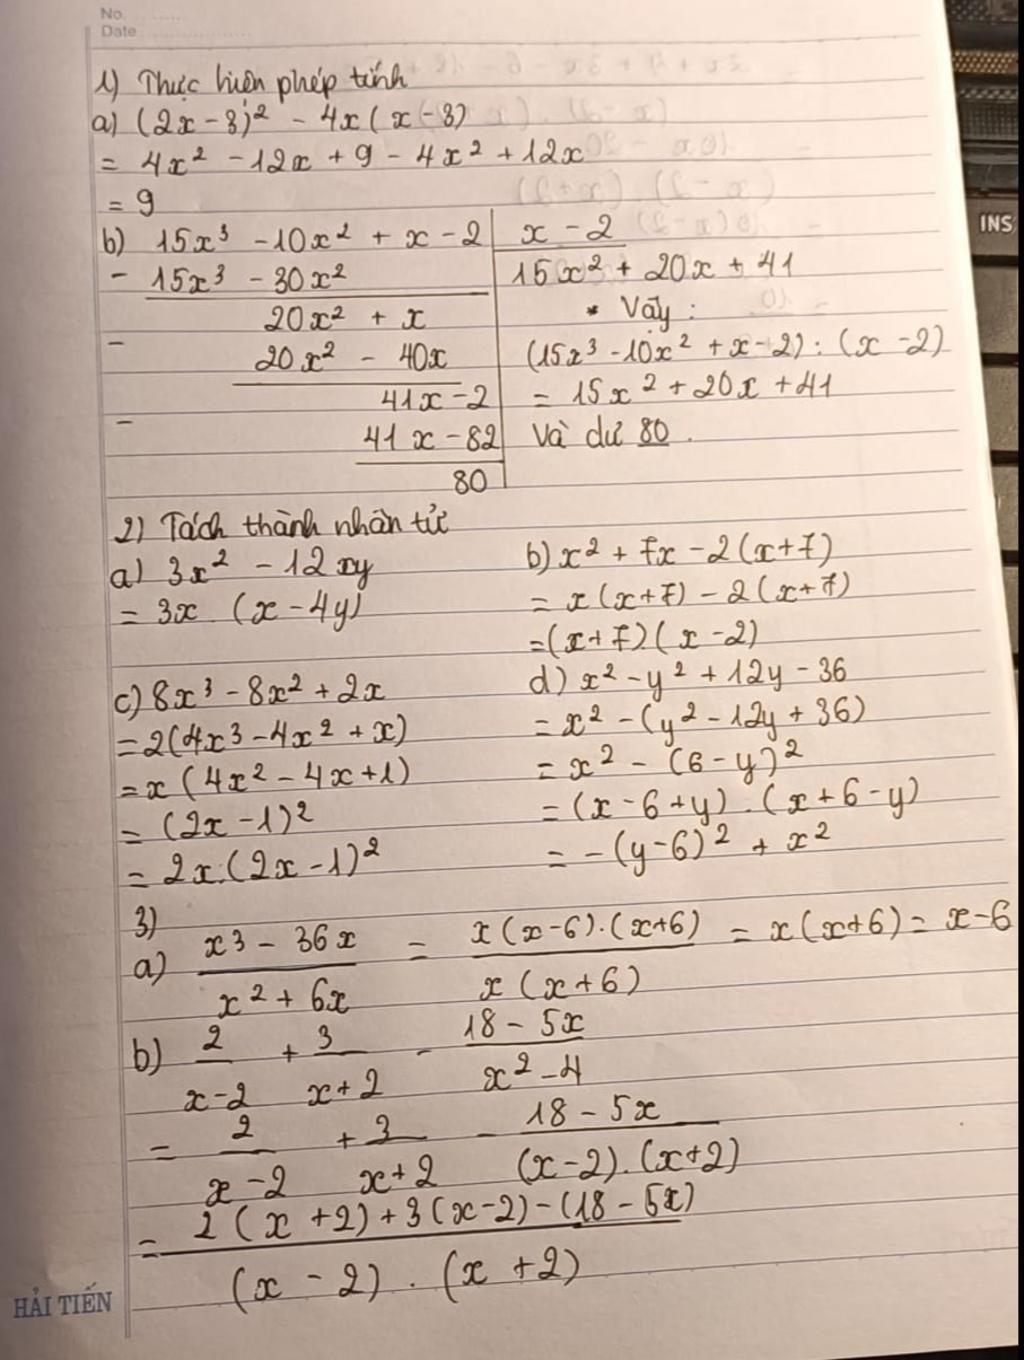 No.
Date
1) Thực hiện phép tính
a) (2x - 3)² - 4x(x - 3)
= 4x² - 12x + 9 - 4x² + 12x
= 9
b) 15x³ - 10x² + x - 2 | x - 2
- 15x³ - 30x² | 15x² + 20x + 41
20x² + x * Vậy :
- 20x² - 40x (15x³ - 10x² + x - 2) : (x - 2)
41x - 2 = 15x² + 20x + 41
- 41x - 82 Và dư 80.
80
2) Tách thành nhân tử
a) 3x² - 12xy
= 3x . (x - 4y)
b) x² + 7x - 2(x + 7)
= x(x + 7) - 2(x + 7)
= (x + 7)(x - 2)
c) 8x³ - 8x² + 2x
= 2(4x³ - 4x² + x)
= x(4x² - 4x + 1)
= (2x - 1)²
= 2x.(2x - 1)²
d) x² - y² + 12y - 36
= x² - (y² - 12y + 36)
= x² - (6 - y)²
= (x - 6 + y) . (x + 6 - y)
= -(y - 6)² + x²
3)
a) (x³ - 36x)/(x² + 6x) = (x(x - 6).(x + 6))/(x(x + 6)) = x(x + 6) = x - 6
b) 2/(x - 2) + 3/(x + 2) - (18 - 5x)/(x² - 4)
= 2/(x - 2) + 3/(x + 2) - (18 - 5x)/((x - 2).(x + 2))
= (2(x + 2) + 3(x - 2) - (18 - 5x))/((x - 2) . (x + 2))
HẢI TIẾN
INS